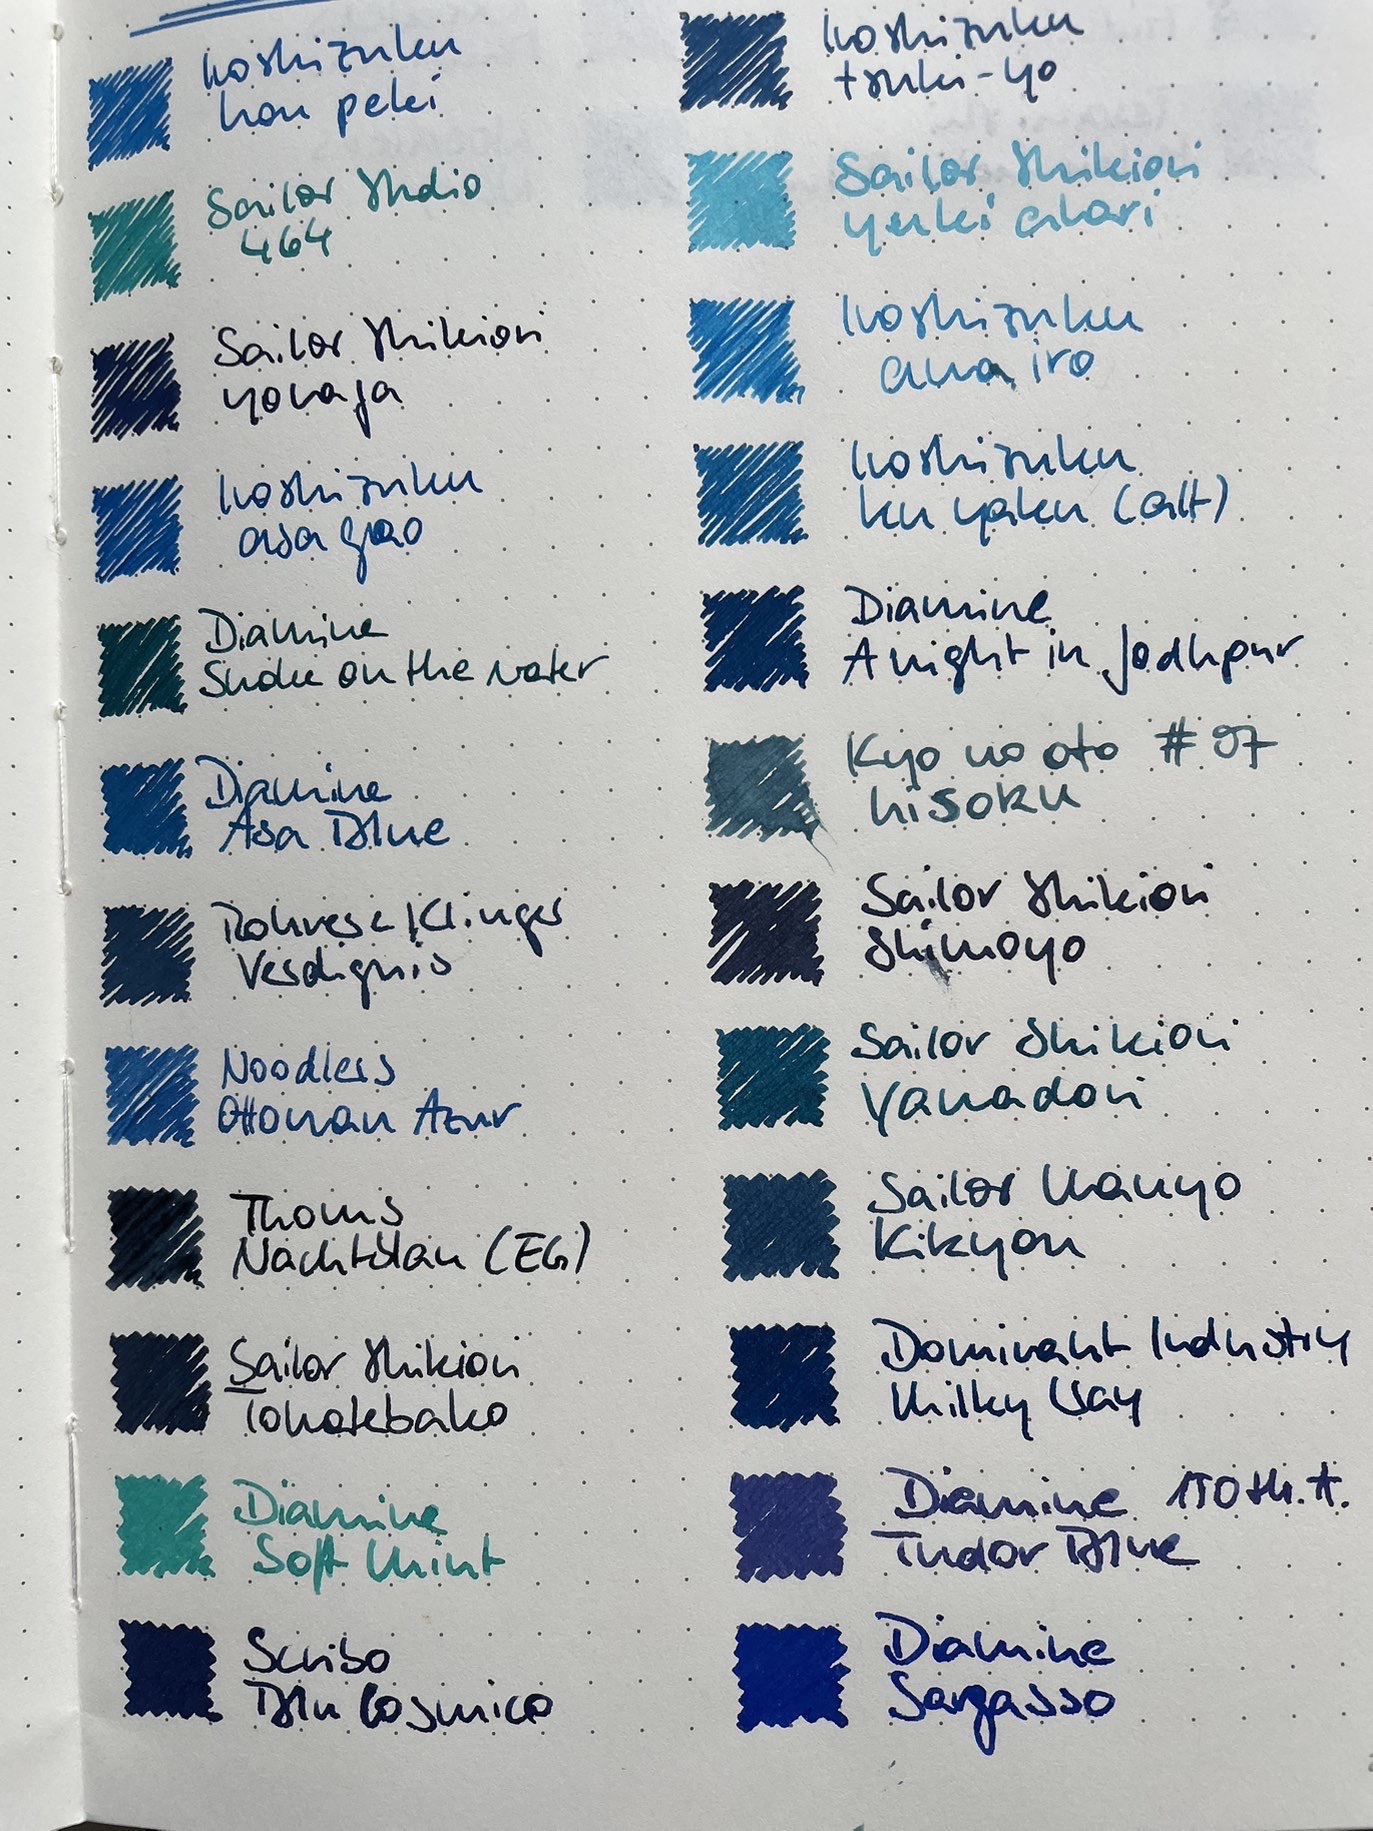 Iroshizuku
kon peki
Sailor Studio
464
Sailor Shikiori
yonaga
Iroshizuku
asa gao
Diamine
Smoke on the water
Diamine
Asa Blue
Rohrer & Klinger
Verdigris
Noodlers
Ottoman Azur
Thoms
Nachtblau (EG)
Sailor Shikiori
Tokotebako
Diamine
Soft Mint
Scribo
Blu Cosmico
Iroshizuku
tsuki-yo
Sailor Shikiori
yuki akari
Iroshizuku
ama iro
Iroshizuku
ku yaku (alt)
Diamine
A night in Jodhpur
Kyo no oto #07
hisoku
Sailor Shikiori
Shimoyo
Sailor Shikiori
Yamadori
Sailor Manyo
Kikyou
Dominant Industry
Milky Way
Diamine 150th. A.
Tudor Blue
Diamine
Sargasso